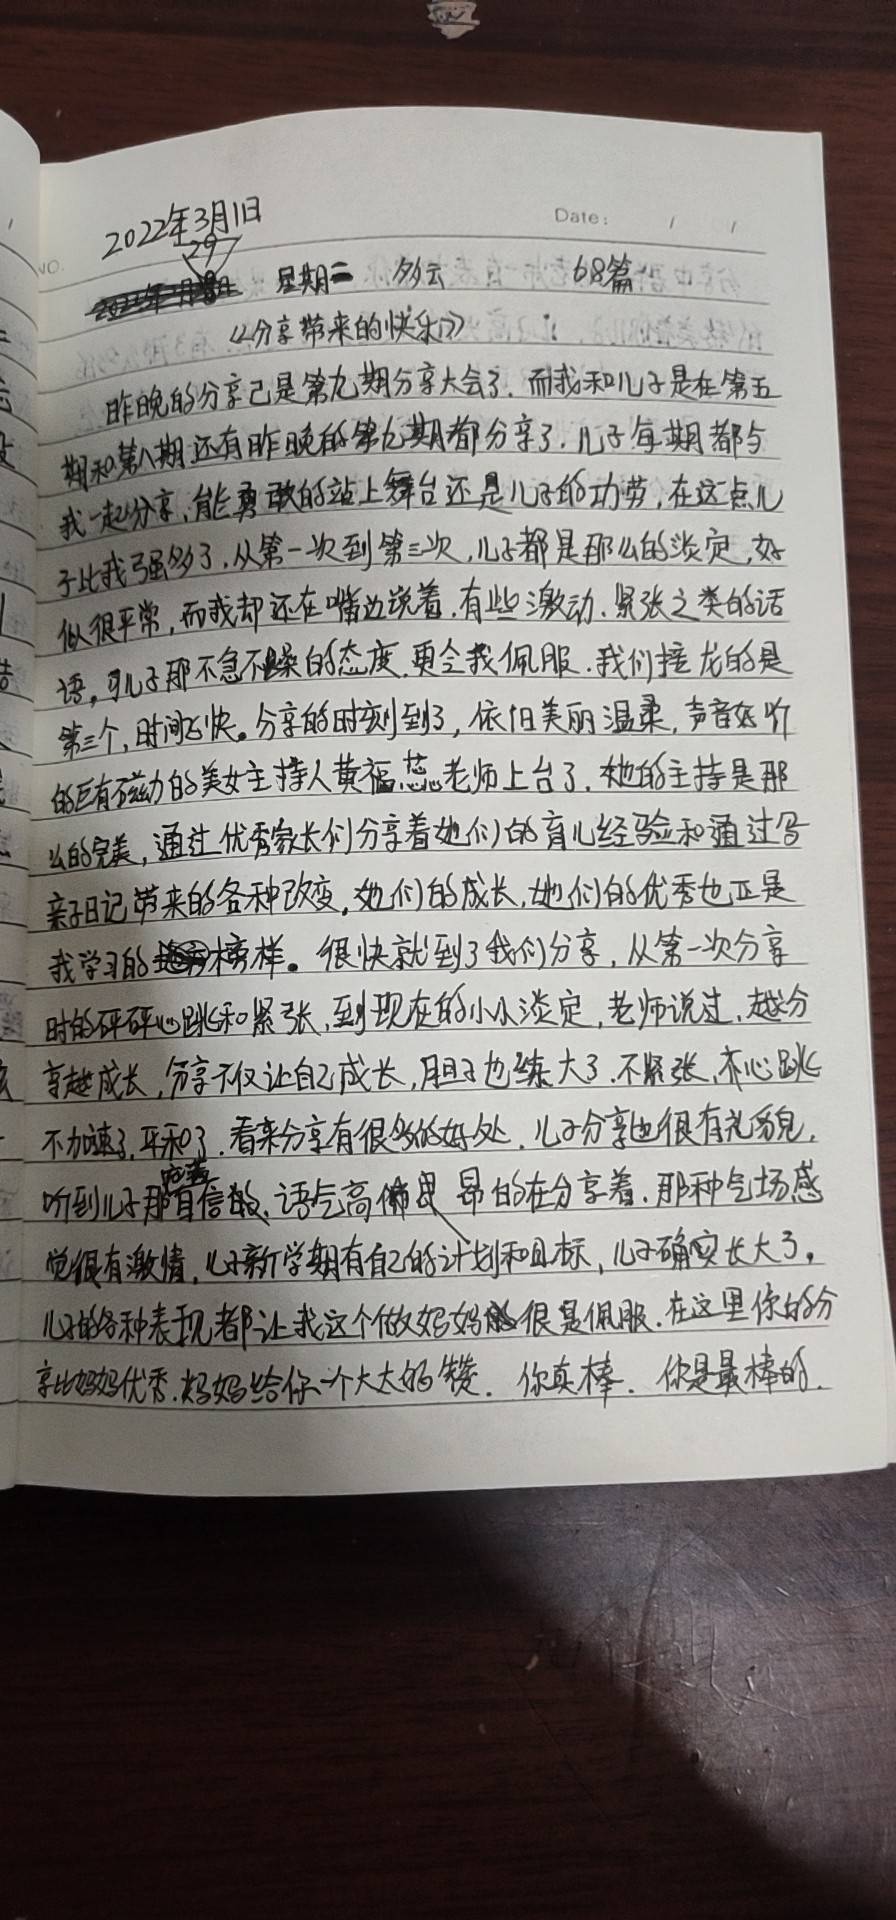 2022年3月1日
Date: / /
NO.
29
星期二 多云 68篇
《分享带来的快乐》
昨晚的分享已是第九期分享大会了.而我和儿子是在第五
期和第八期还有昨晚的第九期都分享了.儿子每期都与
我一起分享,能勇敢的站上舞台还是儿子的功劳,在这点儿
子比我强多了,从第一次到第三次,儿子都是那么的淡定,好
似很平常,而我却还在嘴边说着.有些激动.紧张之类的话
语,可儿子那不急不躁的态度.更令我佩服.我们接龙的是
第三个,时间飞快。分享的时刻到了,依旧美丽温柔,声音好听
的巨有磁力的美女主持人黄福蕊老师上台了.她的主持是那
么的完美,通过优秀家长们分享着她们的育儿经验和通过写
亲子日记带来的各种改变,她们的成长,她们的优秀也正是
我学习的榜样。很快就到了我们分享,从第一次分享
时的砰砰心跳和紧张,到现在的小小淡定,老师说过,越分
享越成长,分享不仅让自己成长,胆子也练大了.不紧张,心跳
不加速了,平和了.看来分享有很多的好处.儿子分享也很有礼貌,
听到儿子那自信的、语气高昂的在分享着.那种气场感
觉很有激情,儿子新学期有自己的计划和目标,儿子确实长大了,
儿子的各种表现都让我这个做妈妈很是佩服.在这里你的分
享比妈妈优秀.妈妈给你一个大大的赞.你真棒.你是最棒的.